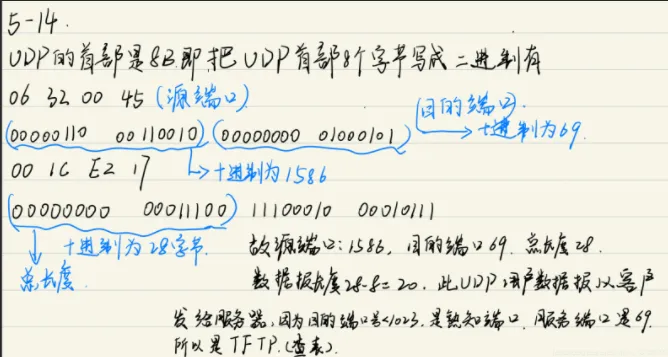 5-14.
UDP的首部是8B.即把UDP首部8个字节写成二进制有
06 32 00 45 (源端口)
(目的端口).
(00000110 00110010) (00000000 01000101) → 十进制为69.
00 1C E2 17 → 十进制为1586
(00000000 00011100) 11100010 00010111
总长度. 十进制为28字节. 故源端口:1586, 目的端口69. 总长度28.
数据报长度28-8=20. 此UDP用户数据报从客户
发给服务器,因为目的端口号<1023.是熟知端口.服务端口是69.
所以是TFTP.(查表).